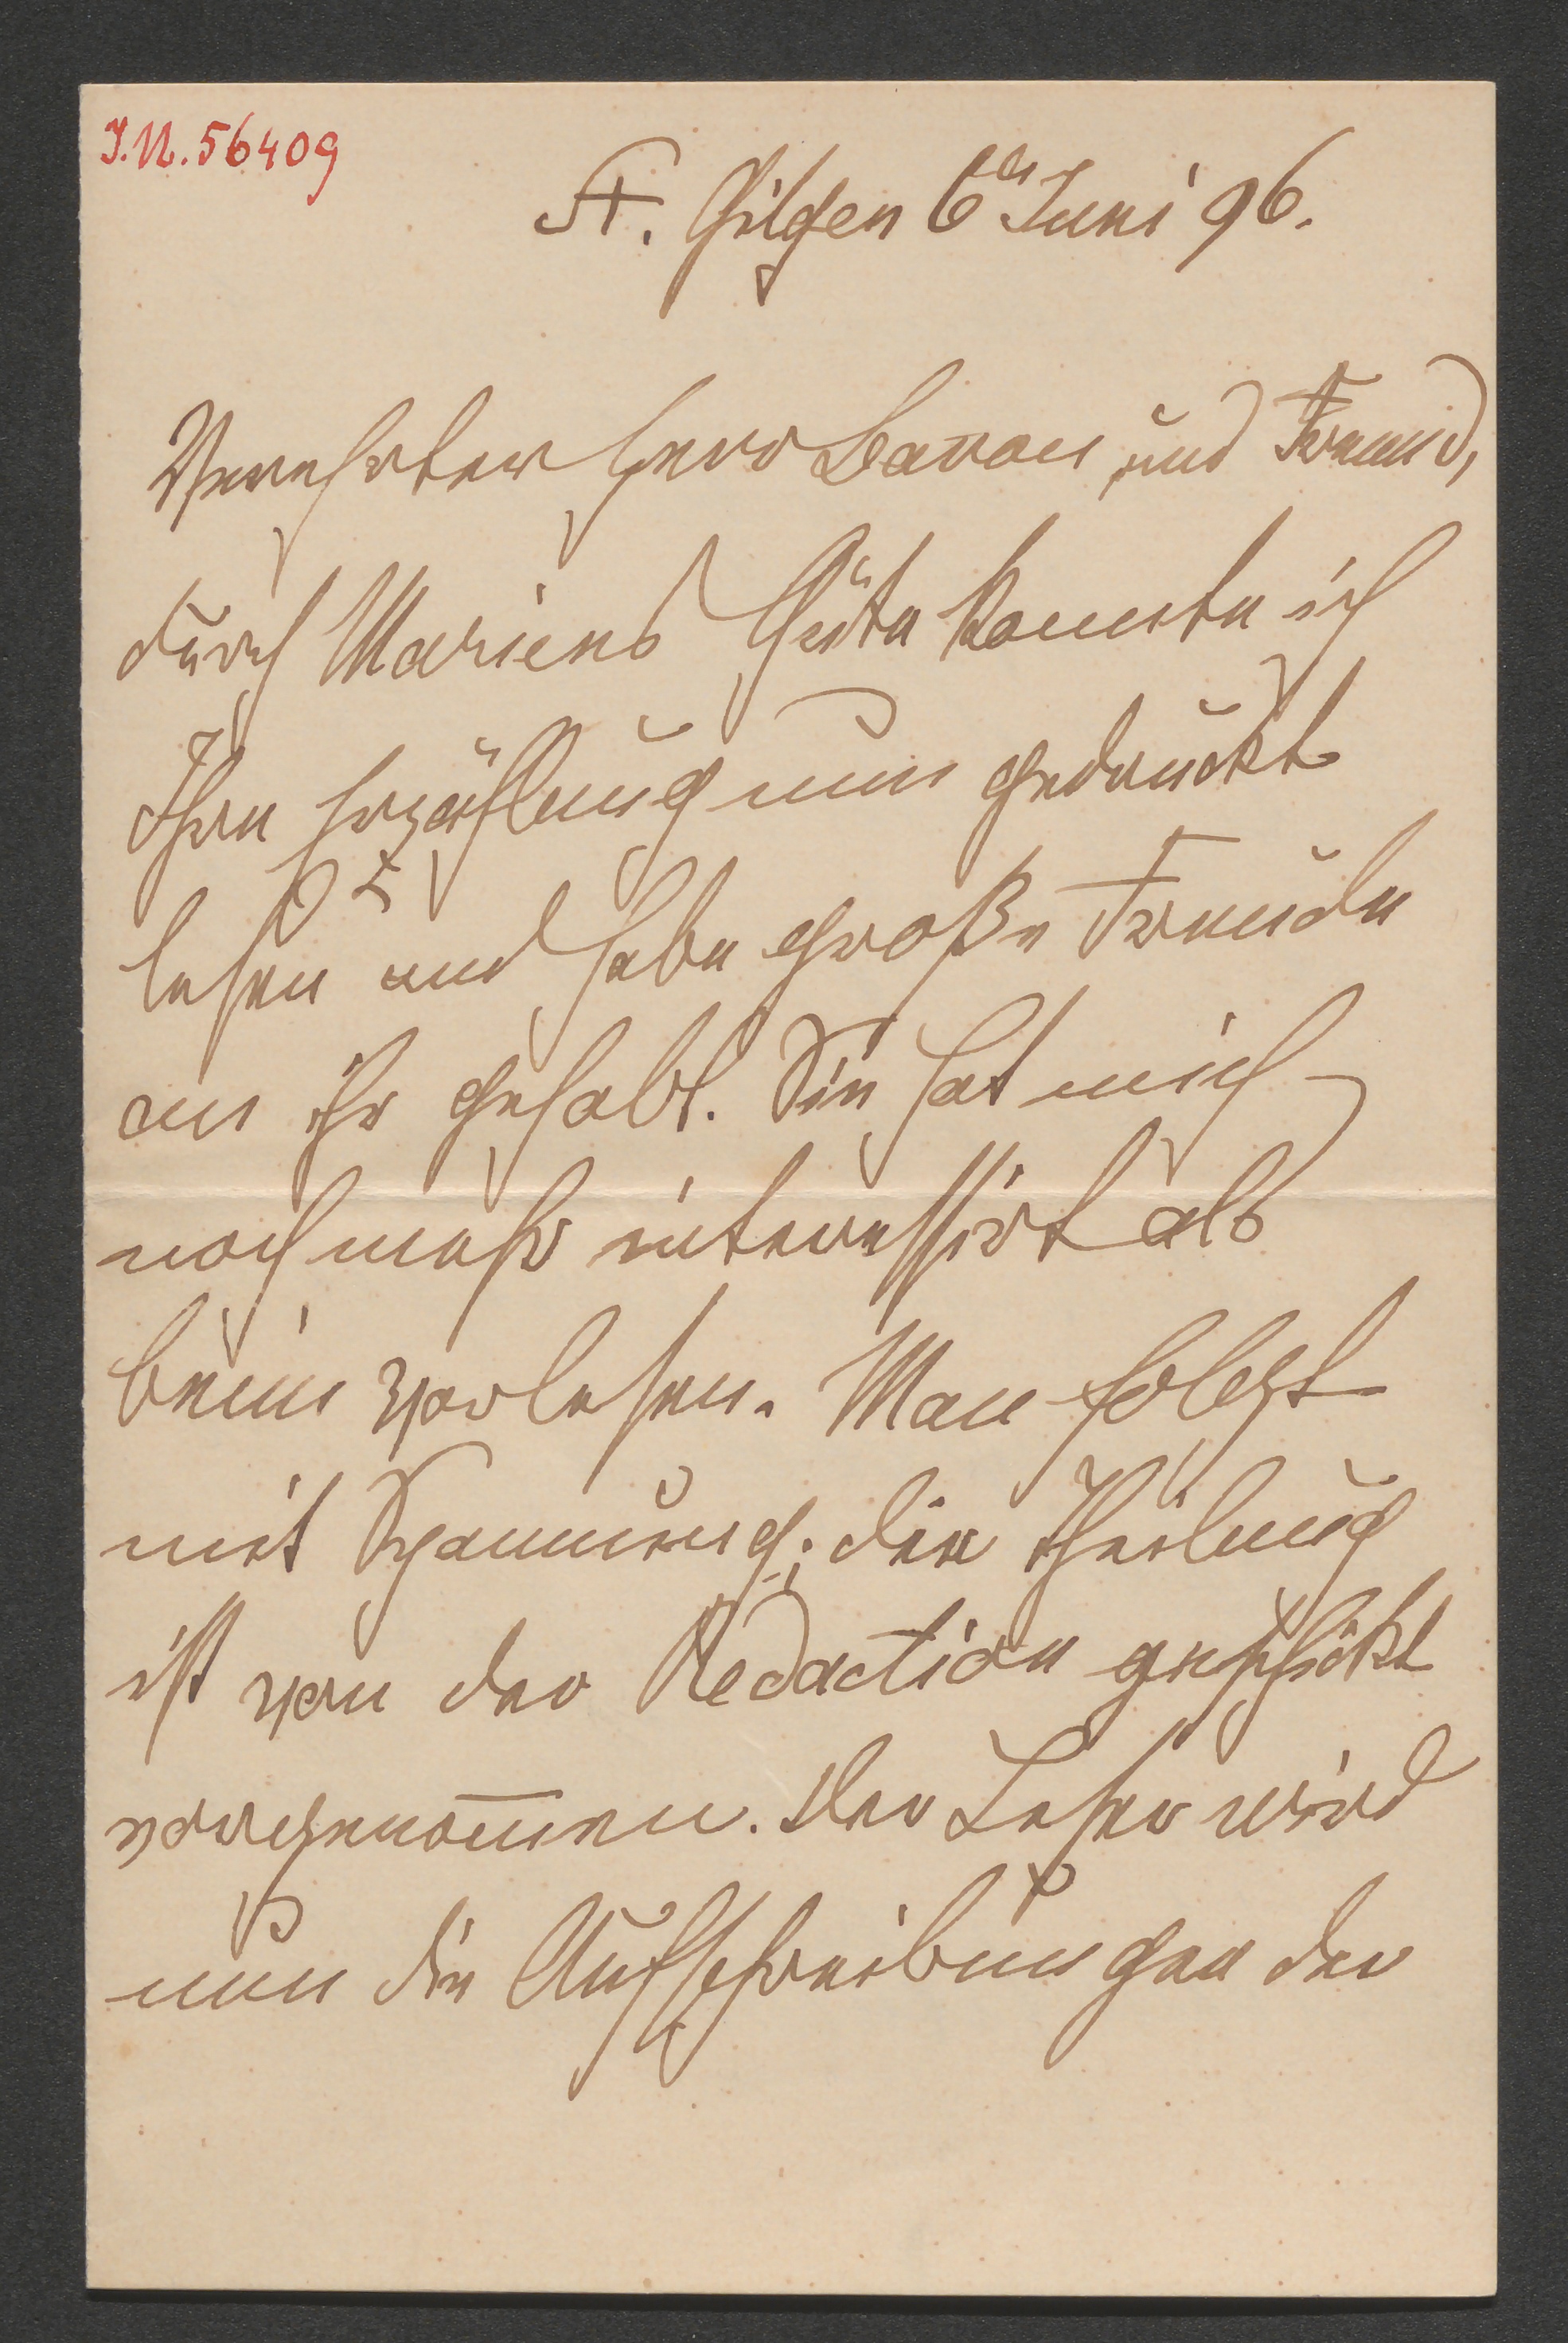 I.N. 56409
St. Gilgen 6te Juni 96.
Verehrter Herr Baron und Freund,
durch Mariens Güte konnte ich
Ihre Erzählung nun gedruckt
lesen und habe große Freude
an ihr gehabt. Sie hat mich
noch mehr interessirt als
beim Vorlesen. Man folgt
mit Spannung; die Theilung
ist von der Redaction geschickt
vorgenom̅en. Der Leser wird
nun die Aufschreibungen der